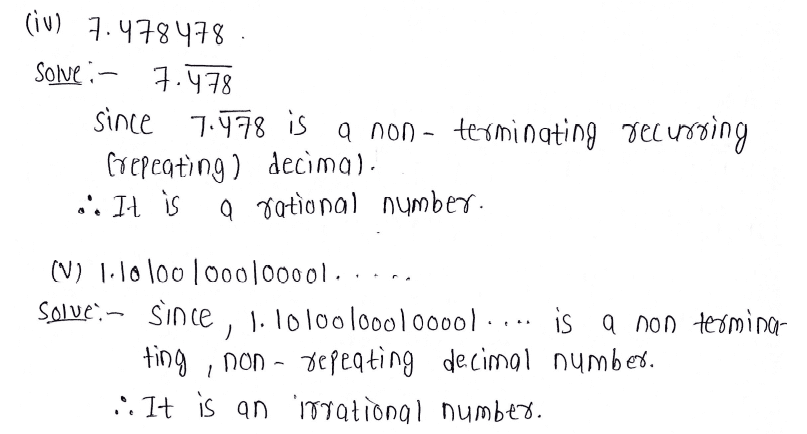 (iv) 7.478478 .
Solve :- 7.4̅7̅8̅
since 7.4̅7̅8 is a non - terminating recurring
(repeating) decimal.
∴ It is a rational number.
(V) 1.101001000100001 . . . . .
Solve:- Since, 1.101001000100001 .... is a non termina-
ting , non - repeating decimal number.
∴ It is an irrational number.